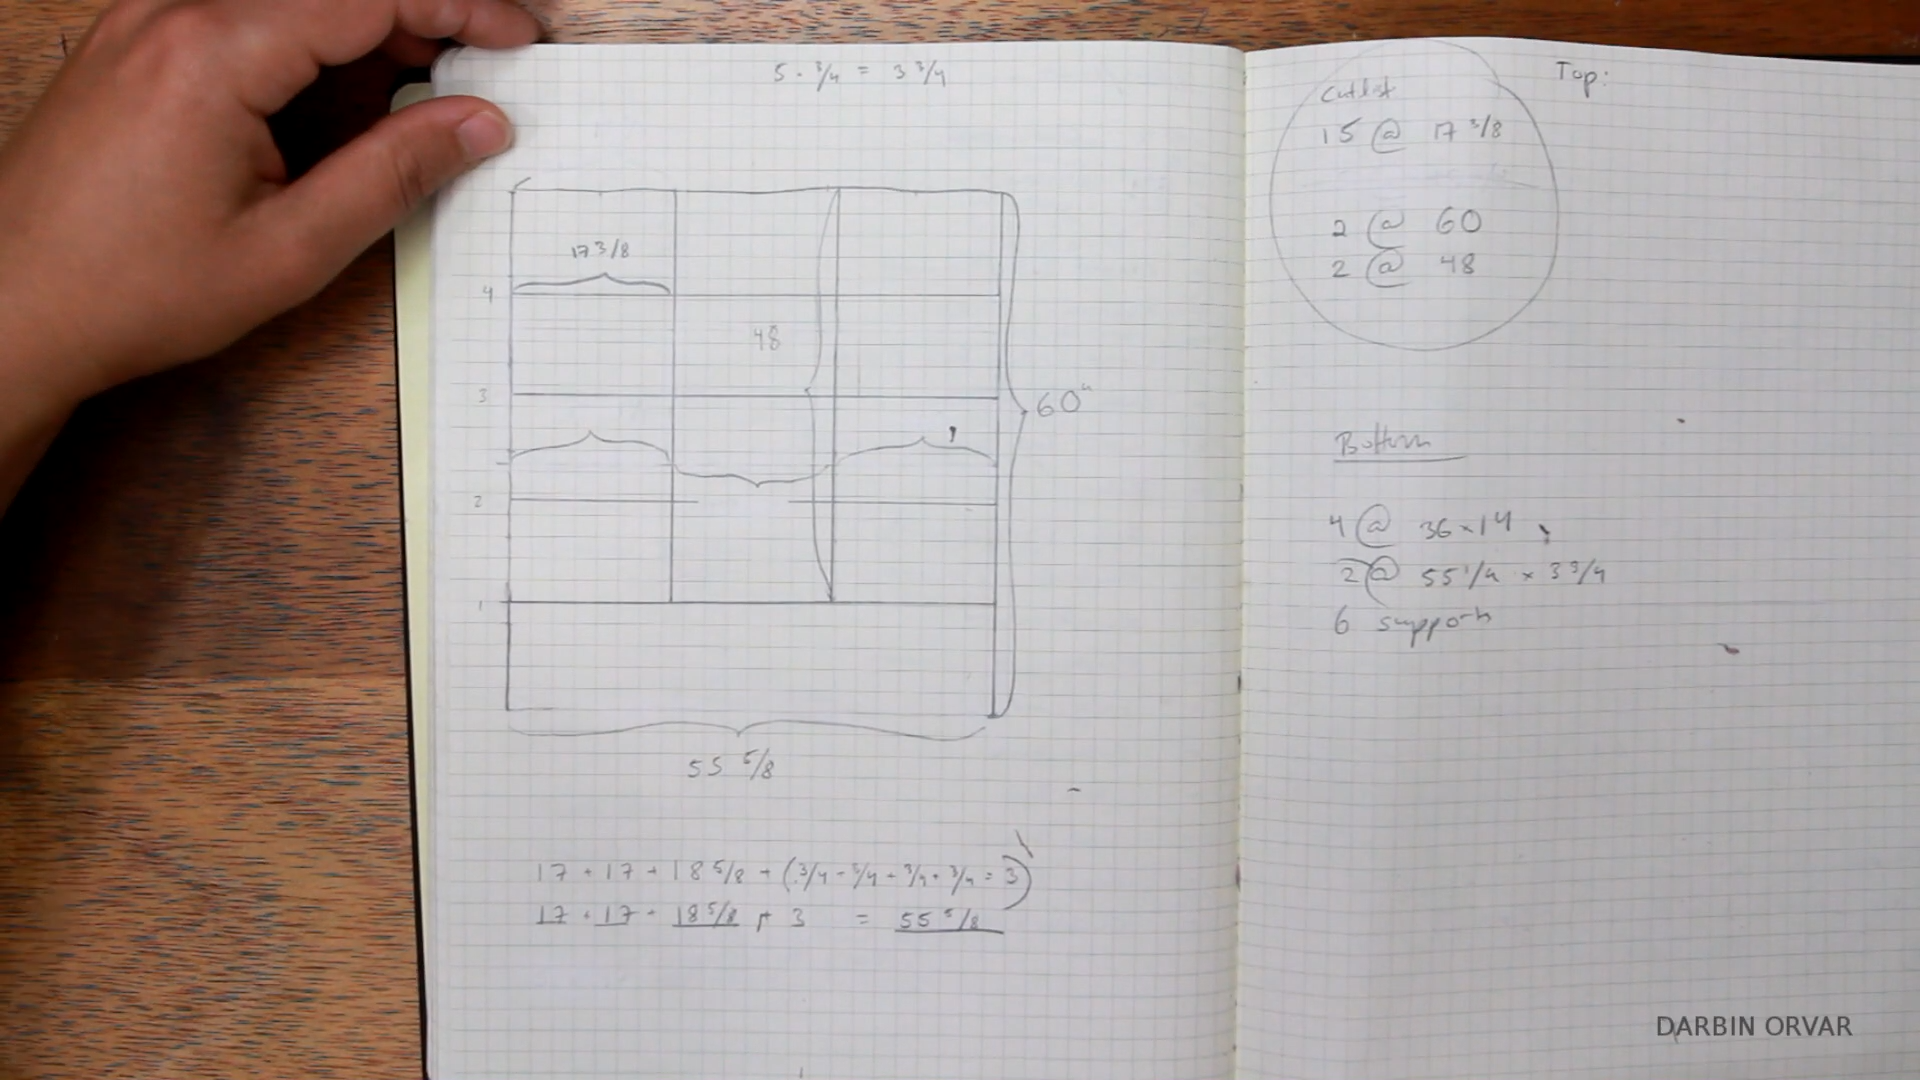 5 · 3/4 = 3 3/4
17 3/8
4
48
3
60"
2
1
55 5/8
17 + 17 + 18 5/8 + (3/4 + 3/4 + 3/4 + 3/4 = 3)
17 + 17 + 18 5/8 + 3 = 55 5/8
Cutlist
15 @ 17 3/8
2 @ 60
2 @ 48
Top:
Bottom
4 @ 36 x 14
2 @ 55 1/4 x 3 3/4
6 supports
DARBIN ORVAR